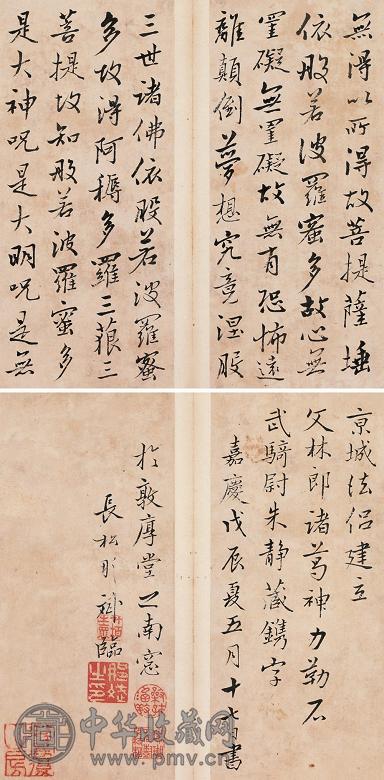 無得以所得故菩提薩埵
依般若波羅蜜多故心無
罣礙無罣礙故無有恐怖遠
離顛倒夢想究竟涅般
三世諸佛依般若波羅蜜
多故得阿耨多羅三藐三
菩提故知般若波羅蜜多
是大神咒是大明咒是無
京城法侶建立
文林郎諸葛神力勒石
武騎尉朱靜藏鐫字
嘉慶戊辰夏五月十七日書
於敦厚堂之南窓
長松臨
中华收藏网
www.pmv.cn